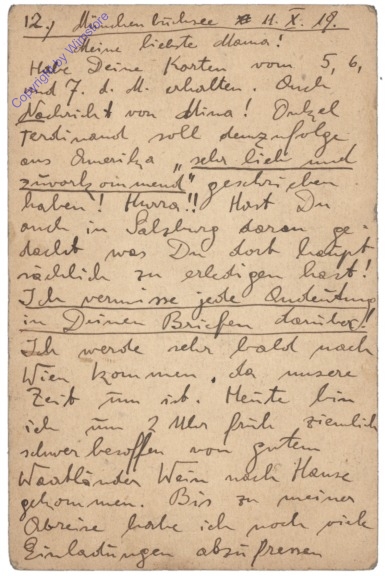 12) Münchenbuchsee 11. X. 19.
Meine liebste Mama!
Habe Deine Karten vom 5, 6,
und 7. d. M. erhalten. Auch
Nachricht von Mina! Onkel
Ferdinand soll demzufolge
aus Amerika „sehr lieb und
zuvorkommend" geschrieben
haben! Hurra!! Hast Du
auch in Salzburg daran ge-
dacht was Du dort haupt
sächlich zu erledigen hast!
Ich vermisse jede Andeutung
in Deinen Briefen darüber!!
Ich werde sehr bald nach
Wien kommen, da unsere
Zeit um ist. Heute bin
ich um 2 Uhr früh ziemlich
schwer besoffen von gutem
Waatländer Wein nach Hause
gekommen. Bis zu meiner
Abreise habe ich noch viele
Einladungen abzufressen
Copyright by Winstore